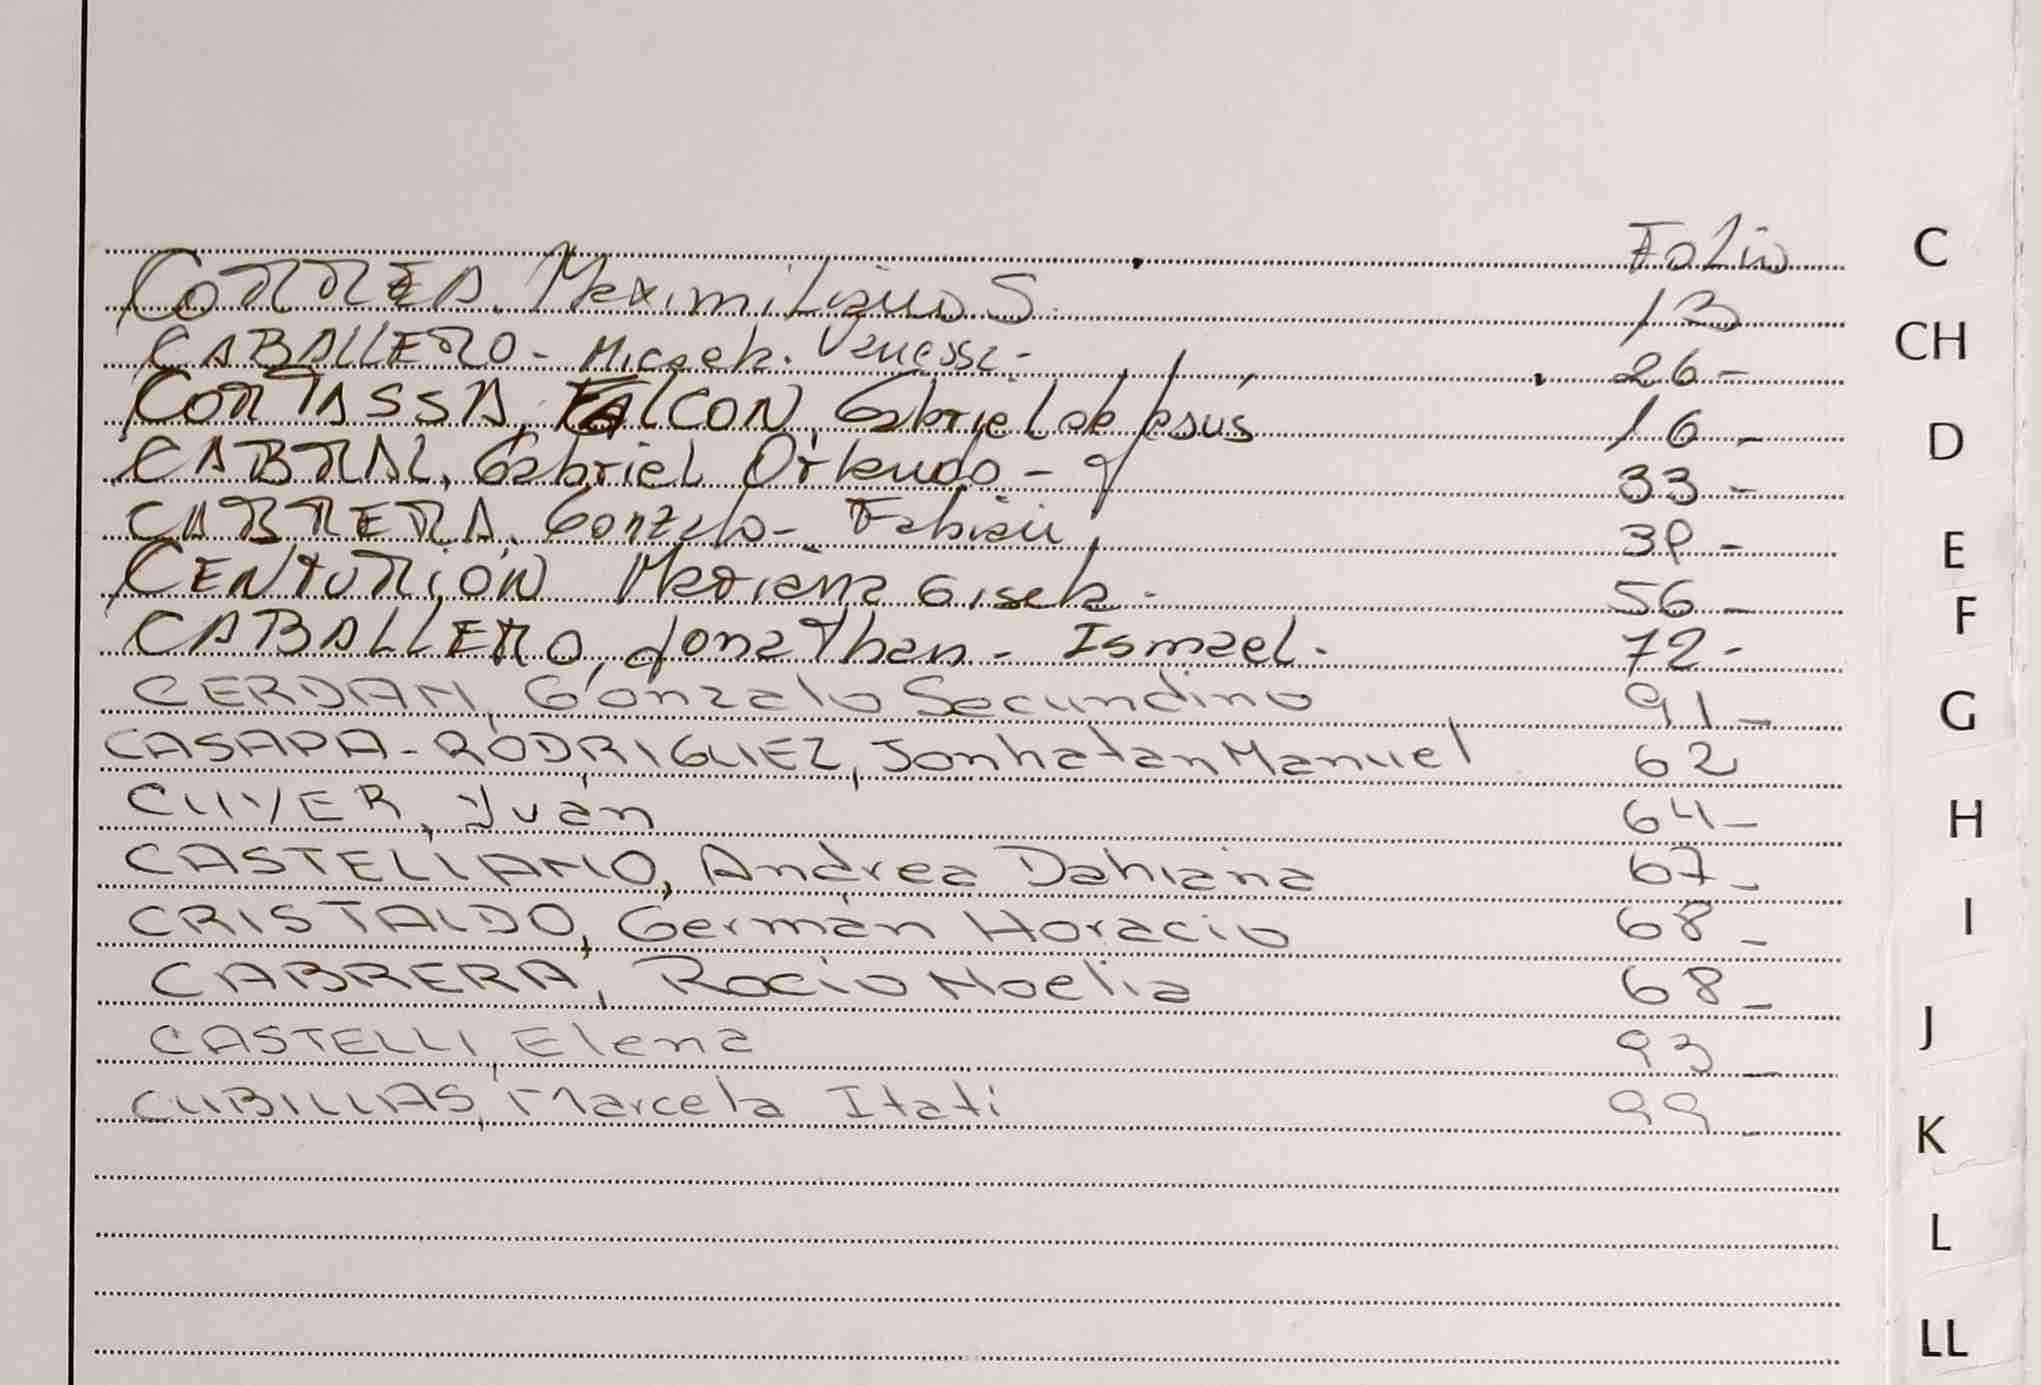 Folio
CORREA, Maximiliano S. 13
CABALLERO - Micaela. Vanessa - 26 -
CORTASSA, FALCON, Gabriel de Jesus 16 -
CABRAL, Gabriel Orlando - 33 -
CABRERA, Gonzalo - Fabián 39 -
CENTURIÓN Mariana Gisela - 56 -
CABALLERO, Jonathan - Ismael. 72 -
CERDAN, Gonzalo Secundino 91 -
CASAPA - RODRIGUEZ, Jonhatan Manuel 62
CUYER, Iván 64 -
CASTELLANO, Andrea Dahiana 67 -
CRISTALDO, Germán Horacio 68 -
CABRERA, Rocío Noelia 68 -
CASTELLI, Elena 93 -
CUBILLAS, Marcela Itatí 99 -
C
CH
D
E
F
G
H
I
J
K
L
LL